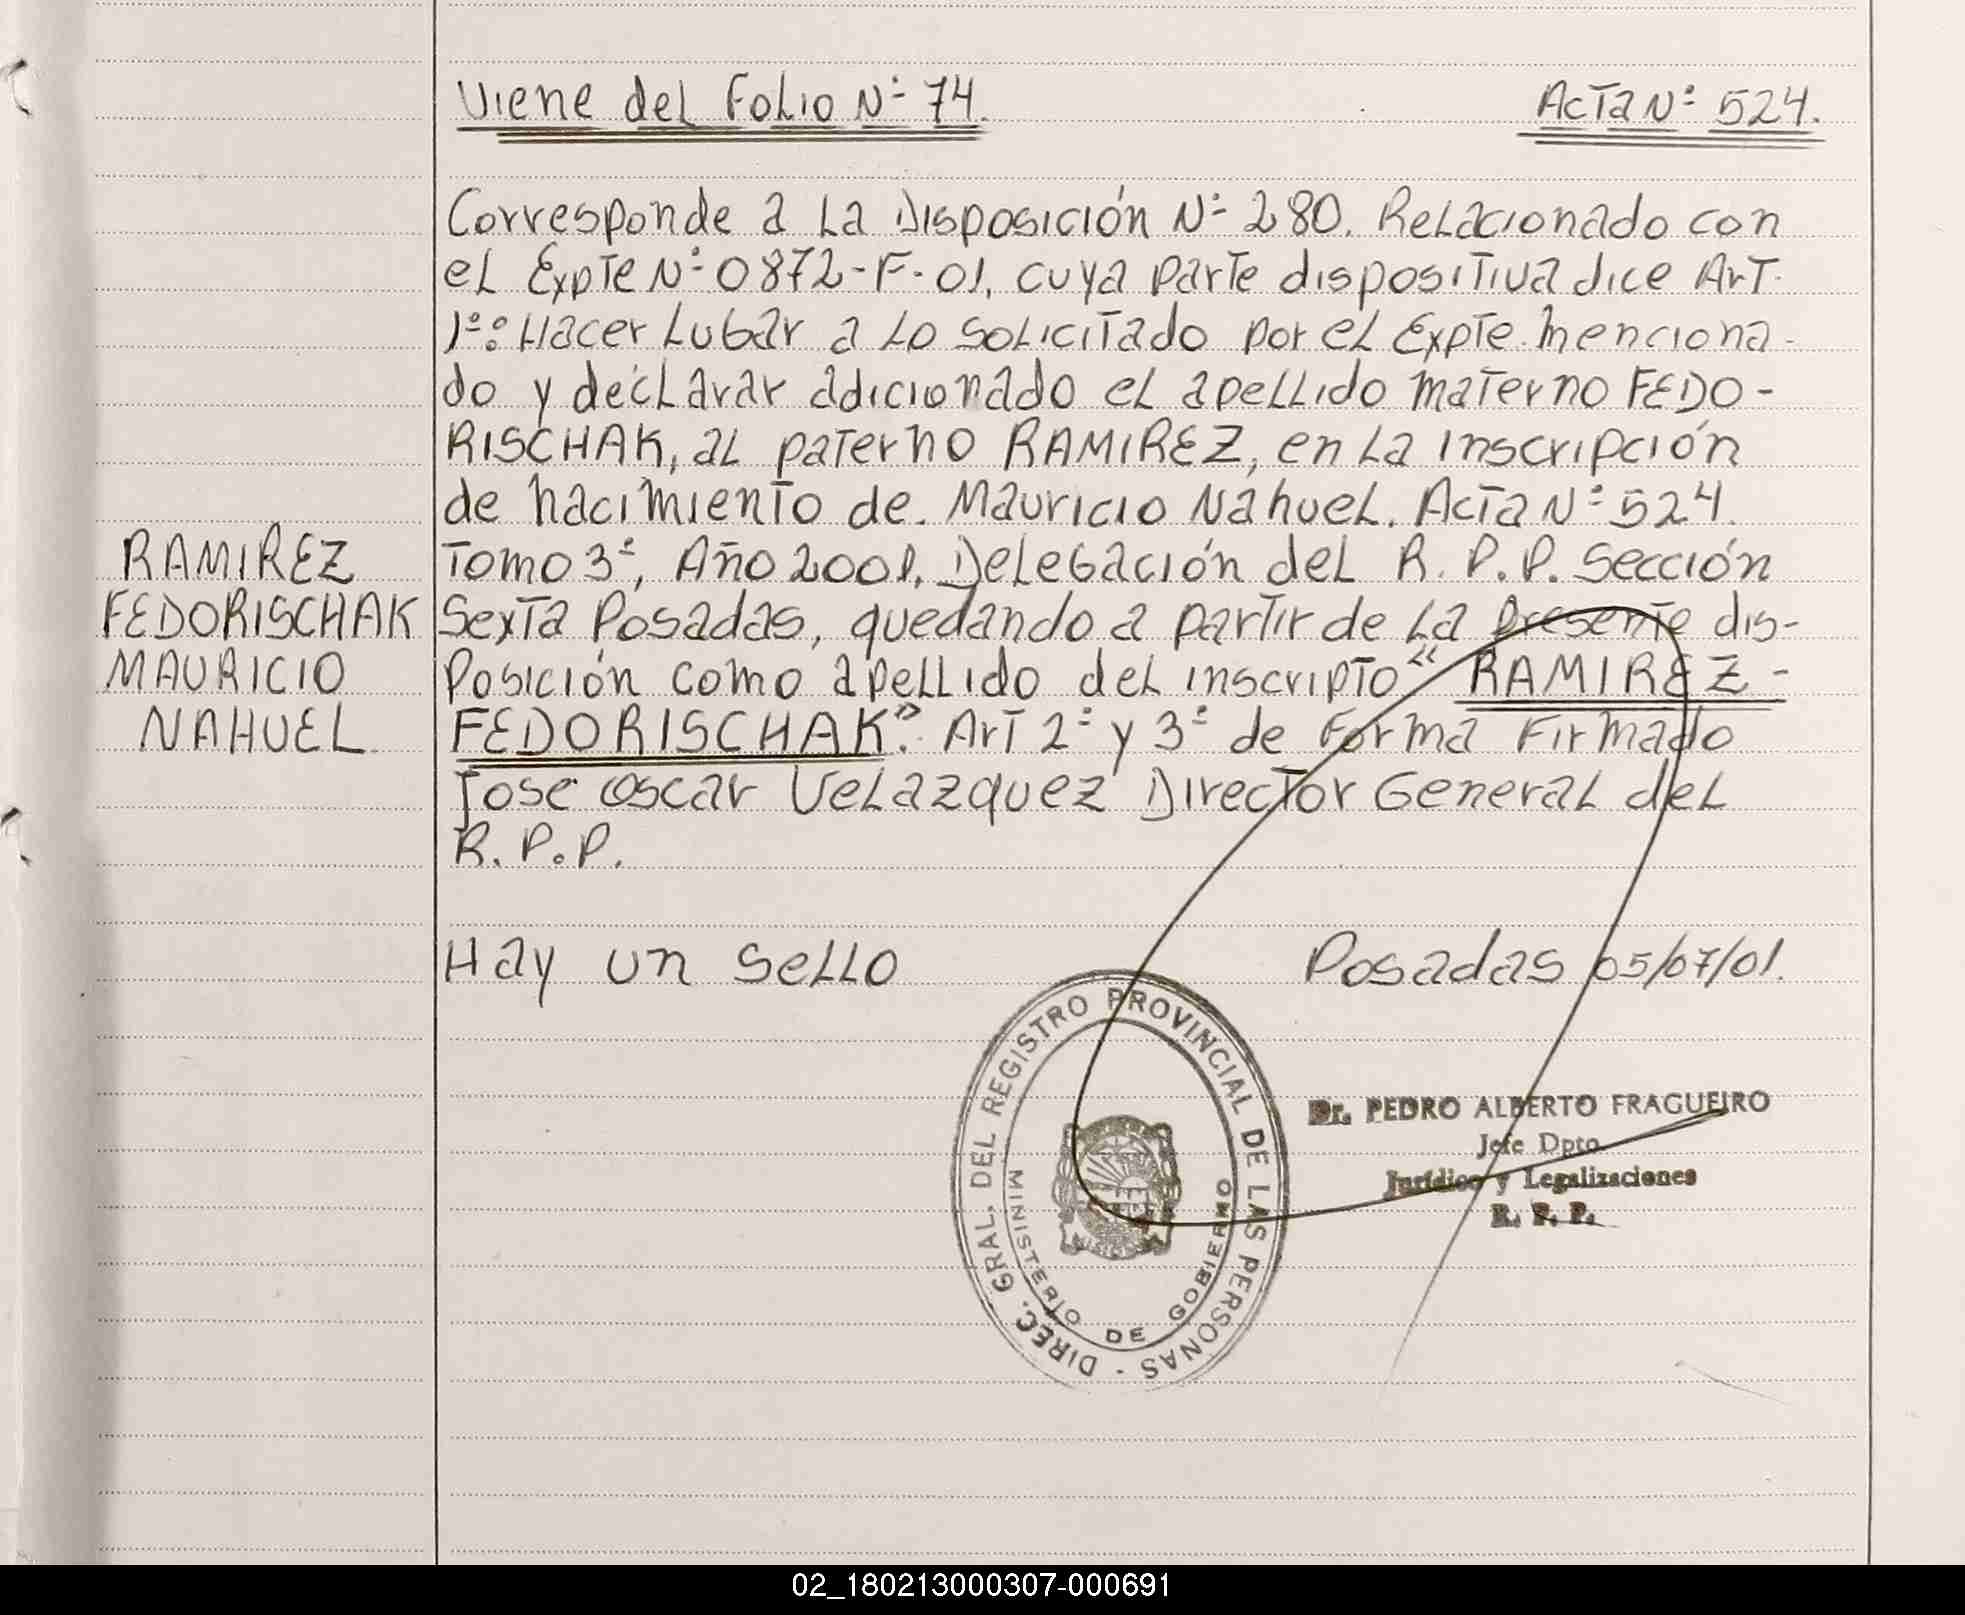 Viene del Folio Nº 74.
Acta Nº 524.
Corresponde a la Disposición Nº 280. Relacionado con
el Expte Nº 0872-F-01, cuya parte dispositiva dice Art.
1º: Hacer Lugar a lo solicitado por el Expte. menciona-
do y declarar adicionado el apellido materno FEDO-
RISCHAK, al paterno RAMIREZ, en la inscripción
de nacimiento de. Mauricio Nahuel. Acta Nº 524.
Tomo 3º, Año 2001, Delegación del R. P. P. Sección
Sexta Posadas, quedando a partir de la presente dis-
posición como apellido del inscripto "RAMIREZ-
FEDORISCHAK". Art 2º y 3º de forma Firmado
Jose Oscar Velazquez Director General del
R. P. P.
RAMIREZ
FEDORISCHAK
MAURICIO
NAHUEL.
Hay un sello
Posadas 05/07/01.
DIREC. GRAL. DEL REGISTRO PROVINCIAL DE LAS PERSONAS -
MINISTERIO DE GOBIERNO
MISIONES
Dr. PEDRO ALBERTO FRAGUEIRO
Jefe Dpto
Jurídico y Legalizaciones
R. P. P.
02_180213000307-000691